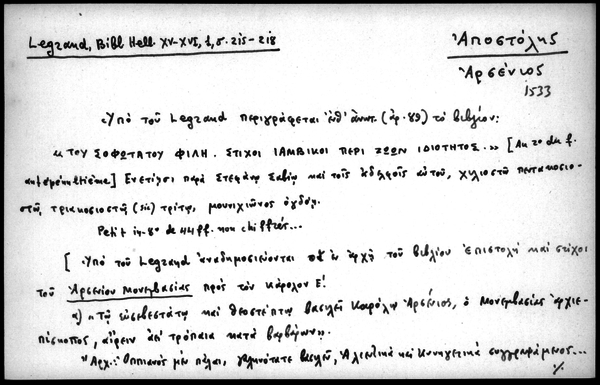 Legrand, Bibl Hell XV-XVI, 1, σ. 215-218
Ἀποστόλης
Ἀρσένιος
1533
Ὑπὸ τοῦ Legrand περιγράφεται ὑπ' ἀριθ. (ἀρ. 89) τὸ βιβλίον:
« ΤΟΥ ΣΟΦΩΤΑΤΟΥ ΦΙΛΗ. ΣΤΙΧΟΙ ΙΑΜΒΙΚΟΙ ΠΕΡΙ ΖΩΩΝ ΙΔΙΟΤΗΤΟΣ.» [Au 2o du f.
antépénultième] Ἐνετίησι παρὰ Στεφάνῳ Σαβίῳ καὶ τοῖς ἀδελφοῖς αὐτοῦ, χιλιοστῷ πεντακοσιο-
στῷ, τριακοσιοστῷ (sic) τρίτῳ, μουνιχιῶνος ὀγδόῃ.
Petit in-8o de 44 ff. non chiffrés...
[Ὑπὸ τοῦ Legrand ἀναδημοσιεύονται ἐν ἀρχῇ τοῦ βιβλίου ἐπιστολὴ καὶ στίχος
τοῦ Ἀρσενίου Μονεμβασίας πρὸς τὸν Κάρολον Ε!
α) «Τῷ εὐσεβεστάτῳ καὶ θεοστέπτῳ βασιλεῖ Καρόλῳ Ἀρσένιος, ὁ Μονεμβασίας ἀρχιε-
πίσκοπος, αἴρειν ἀεὶ τρόπαια κατὰ βαρβάρων».
Ἀρχ.: Ὀππιανὸς μὲν πάλαι, γαληνότατε βασιλεῦ, Ἁλιευτικὰ καὶ Κυνηγετικὰ συγγραψάμενος...
./.